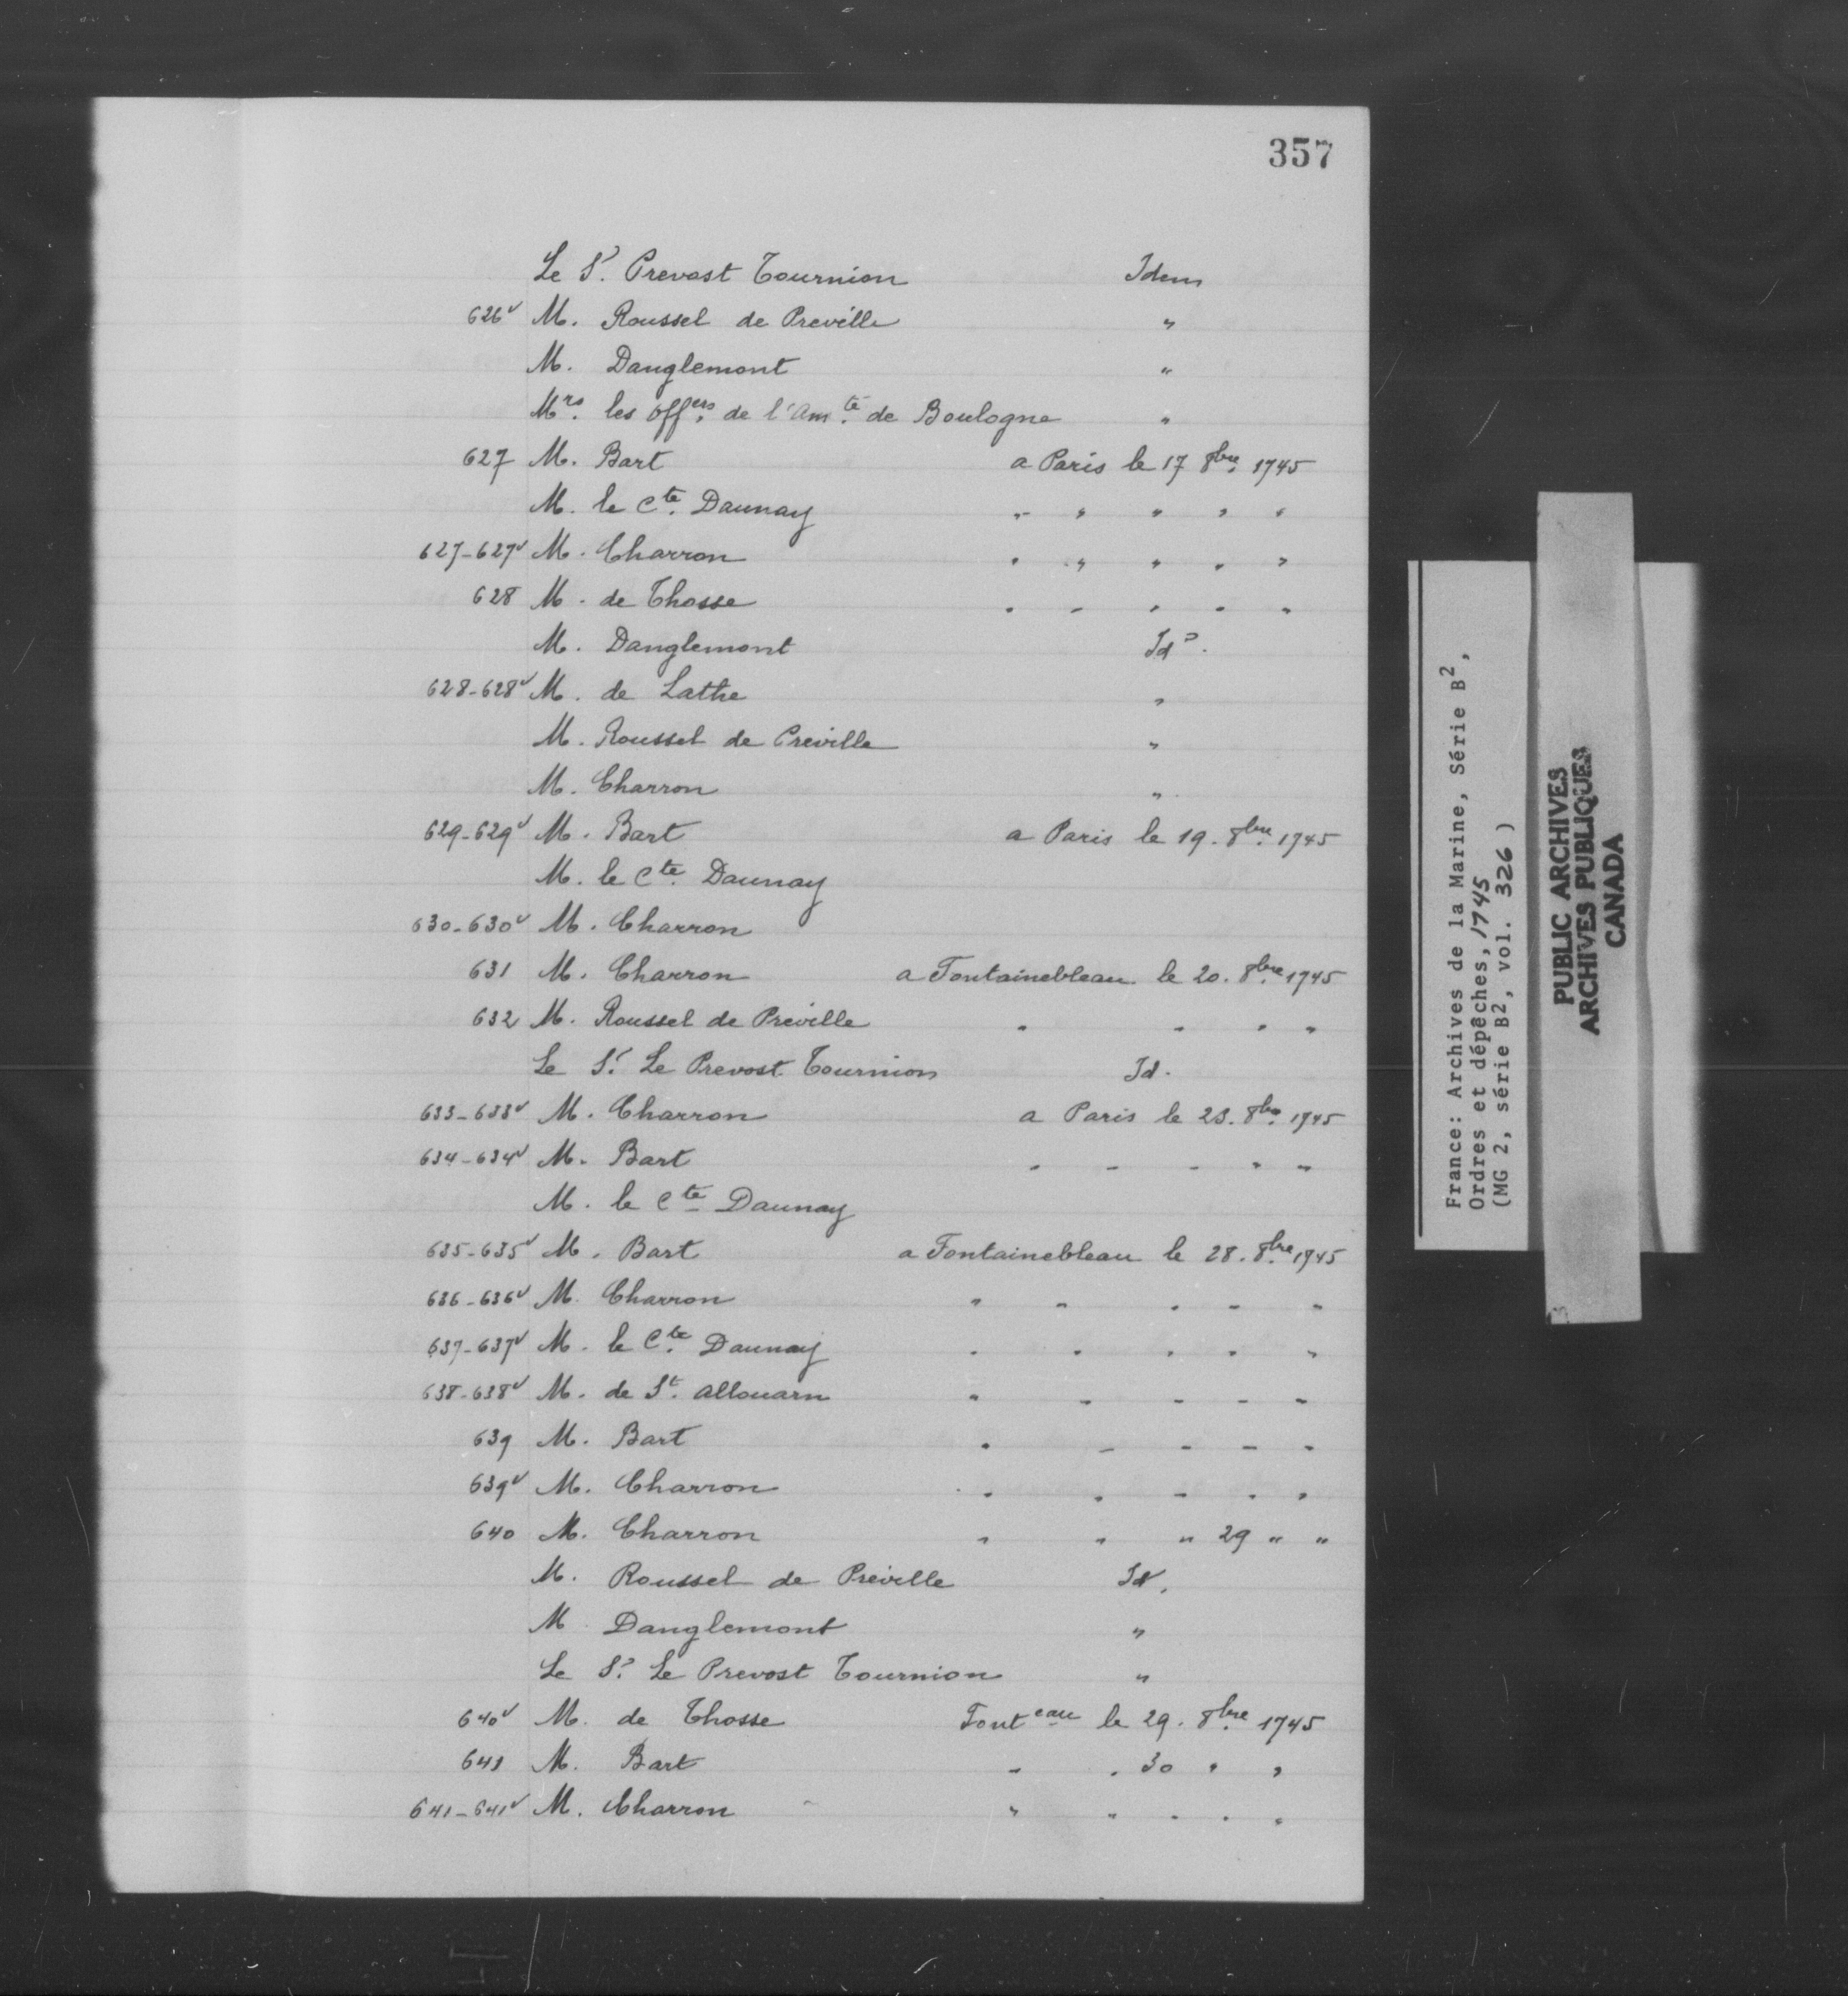 357
Le Sr. Prevost Tournion Idem
626v M. Roussel de Preville "
M. Danglemont "
Mrs. les offers. de l'Amté. de Boulogne "
627 M. Bart a Paris le 17 8bre. 1745
M. le Cte. Daunay " " " " "
627-627v M. Charron " " " " "
628 M. de Thosse " " " " "
M. Danglemont Ido.
628-628v M. de Lathe "
M. Roussel de Preville "
M. Charron "
629-629v M. Bart a Paris le 19. 8bre. 1745
M. le Cte. Daunay
630-630v M. Charron
631 M. Charron a Fontainebleau le 20. 8bre. 1745
632 M. Roussel de Préville " " " "
Le Sr. Le Prevost Tournion Id.
633-633v M. Charron a Paris le 23. 8bre. 1745
634-634v M. Bart " " " " "
M. le Cte Daunay
635-635v M. Bart a Fontainebleau le 28. 8bre. 1745
636-636v M. Charron " " " " "
637-637v M. le Cte. Daunay " " " " "
638-638v M. de St. Allouarn " " " " "
639 M. Bart " " " " "
639v M. Charron " " " " "
640 M. Charron " " " 29 " "
M. Roussel de Préville Id.
M Danglemont "
Le Sr. Le Prevost Tournion "
640v M. de Thosse Fonteau le 29. 8bre. 1745
641 M. Bart " " 30 " "
641-641v M. Charron " " " " "
France: Archives de la Marine, Série B2,
Ordres et dépêches, 1745
(MG 2, série B2, vol. 326)
PUBLIC ARCHIVES
ARCHIVES PUBLIQUES
CANADA